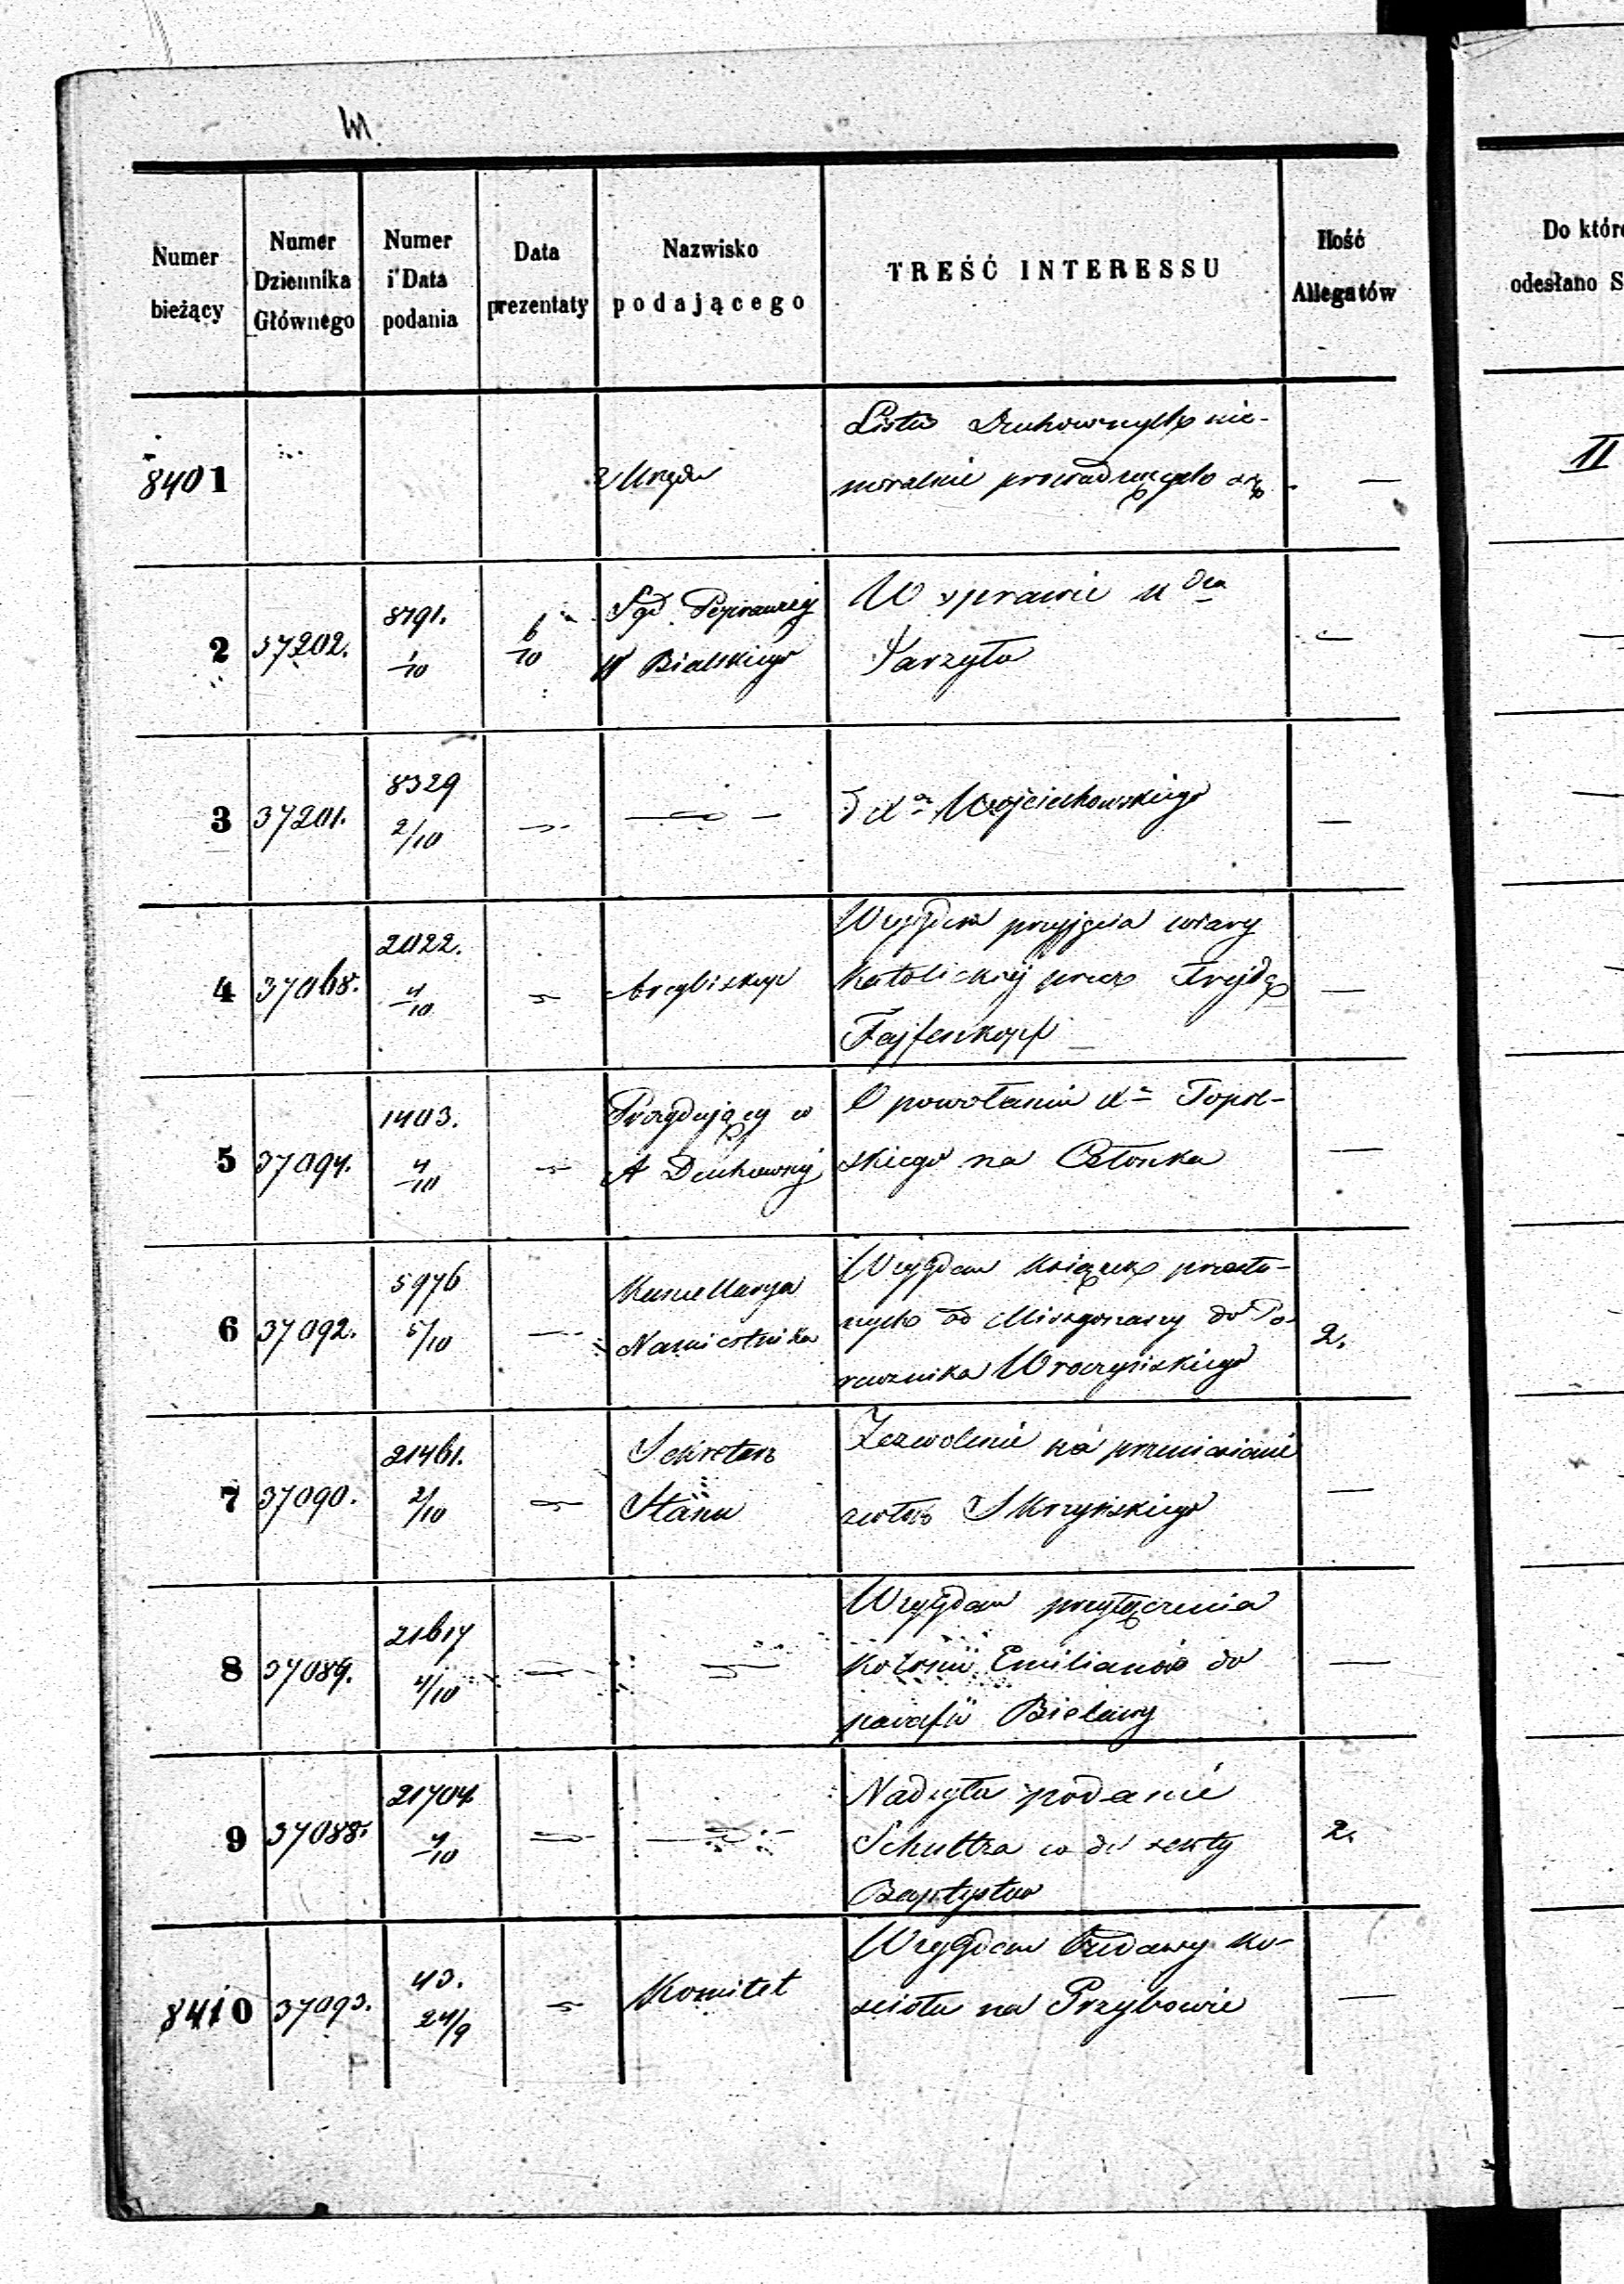 Numer bieżący
Numer Dziennika Głównego
Numer i Data podania
Data prezentaty
Nazwisko podającego
TREŚĆ INTERESSU
Ilość Allegatów
Do które
odesłano S
8401
z Urzędu
Lista Duchownych nie-
moralnie prowadzących się
—
II
2
37202.
8791.
1/10
6/10
Sąd Poprawczej
W Bialskiego
W sprawie
Jarzyła
—
3
37201.
8329
2/10
—
—
Wojciechowskiego
—
4
37068.
2022.
4/10
—
Arcybiskup
Względem przyjęcia wiary
katolickiej przez Frejdę
Fajfenkopf
—
5
37094.
1403.
4/10
—
Prezydujący w
A Duchownej
O powołaniu Xa Topol-
skiego na Członka
—
6
37092.
5976
5/10
—
Kancellarya
Namiestnika
Względem książek przesła-
nych od do Po-
rucznika Wroczyńskiego
2.
7
37090.
21461.
2/10
—
Sekretarz
Stanu
Zezwolenie na przeniesienie
zwłok Skrzyńskiego
—
8
37089.
21617
4/10
—
—
Względem przyłączenia
Kolonii Emilianów do
parafii Bielawy
—
9
37088.
21704
4/10
—
—
Nadsyła podanie
Schultza co do sekty
Baptystów
2.
8410
37093.
43.
24/9
—
Komitet
Względem budowy ko-
ścioła na Grzybowie
—